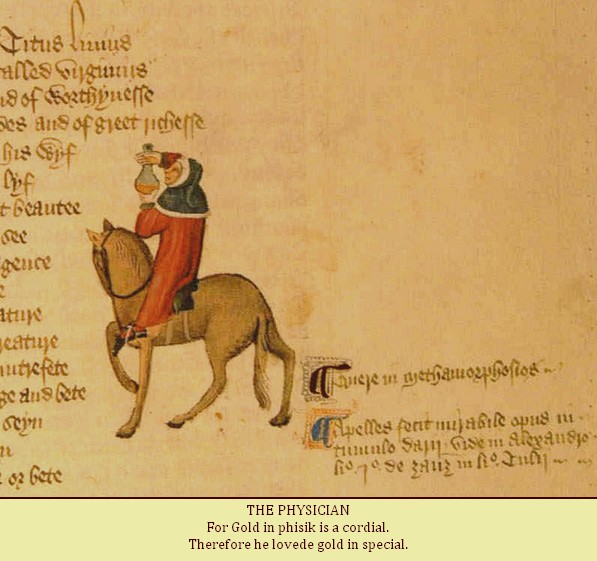 Titus Livius
called virginius
nd of worthynesse
des and of greet richesse
his wyf
lyf
t beautee
see
gence
e
ature
reature
ntrefete
ge and bete
seyn
n
e or bete
Quere in methamorphosios
Apelles fecit mirabile opus in
tumulo darij vide in alexandro
li⁰. 1⁰. de zanz in li⁰. Tulij
THE PHYSICIAN
For Gold in phisik is a cordial.
Therefore he lovede gold in special.